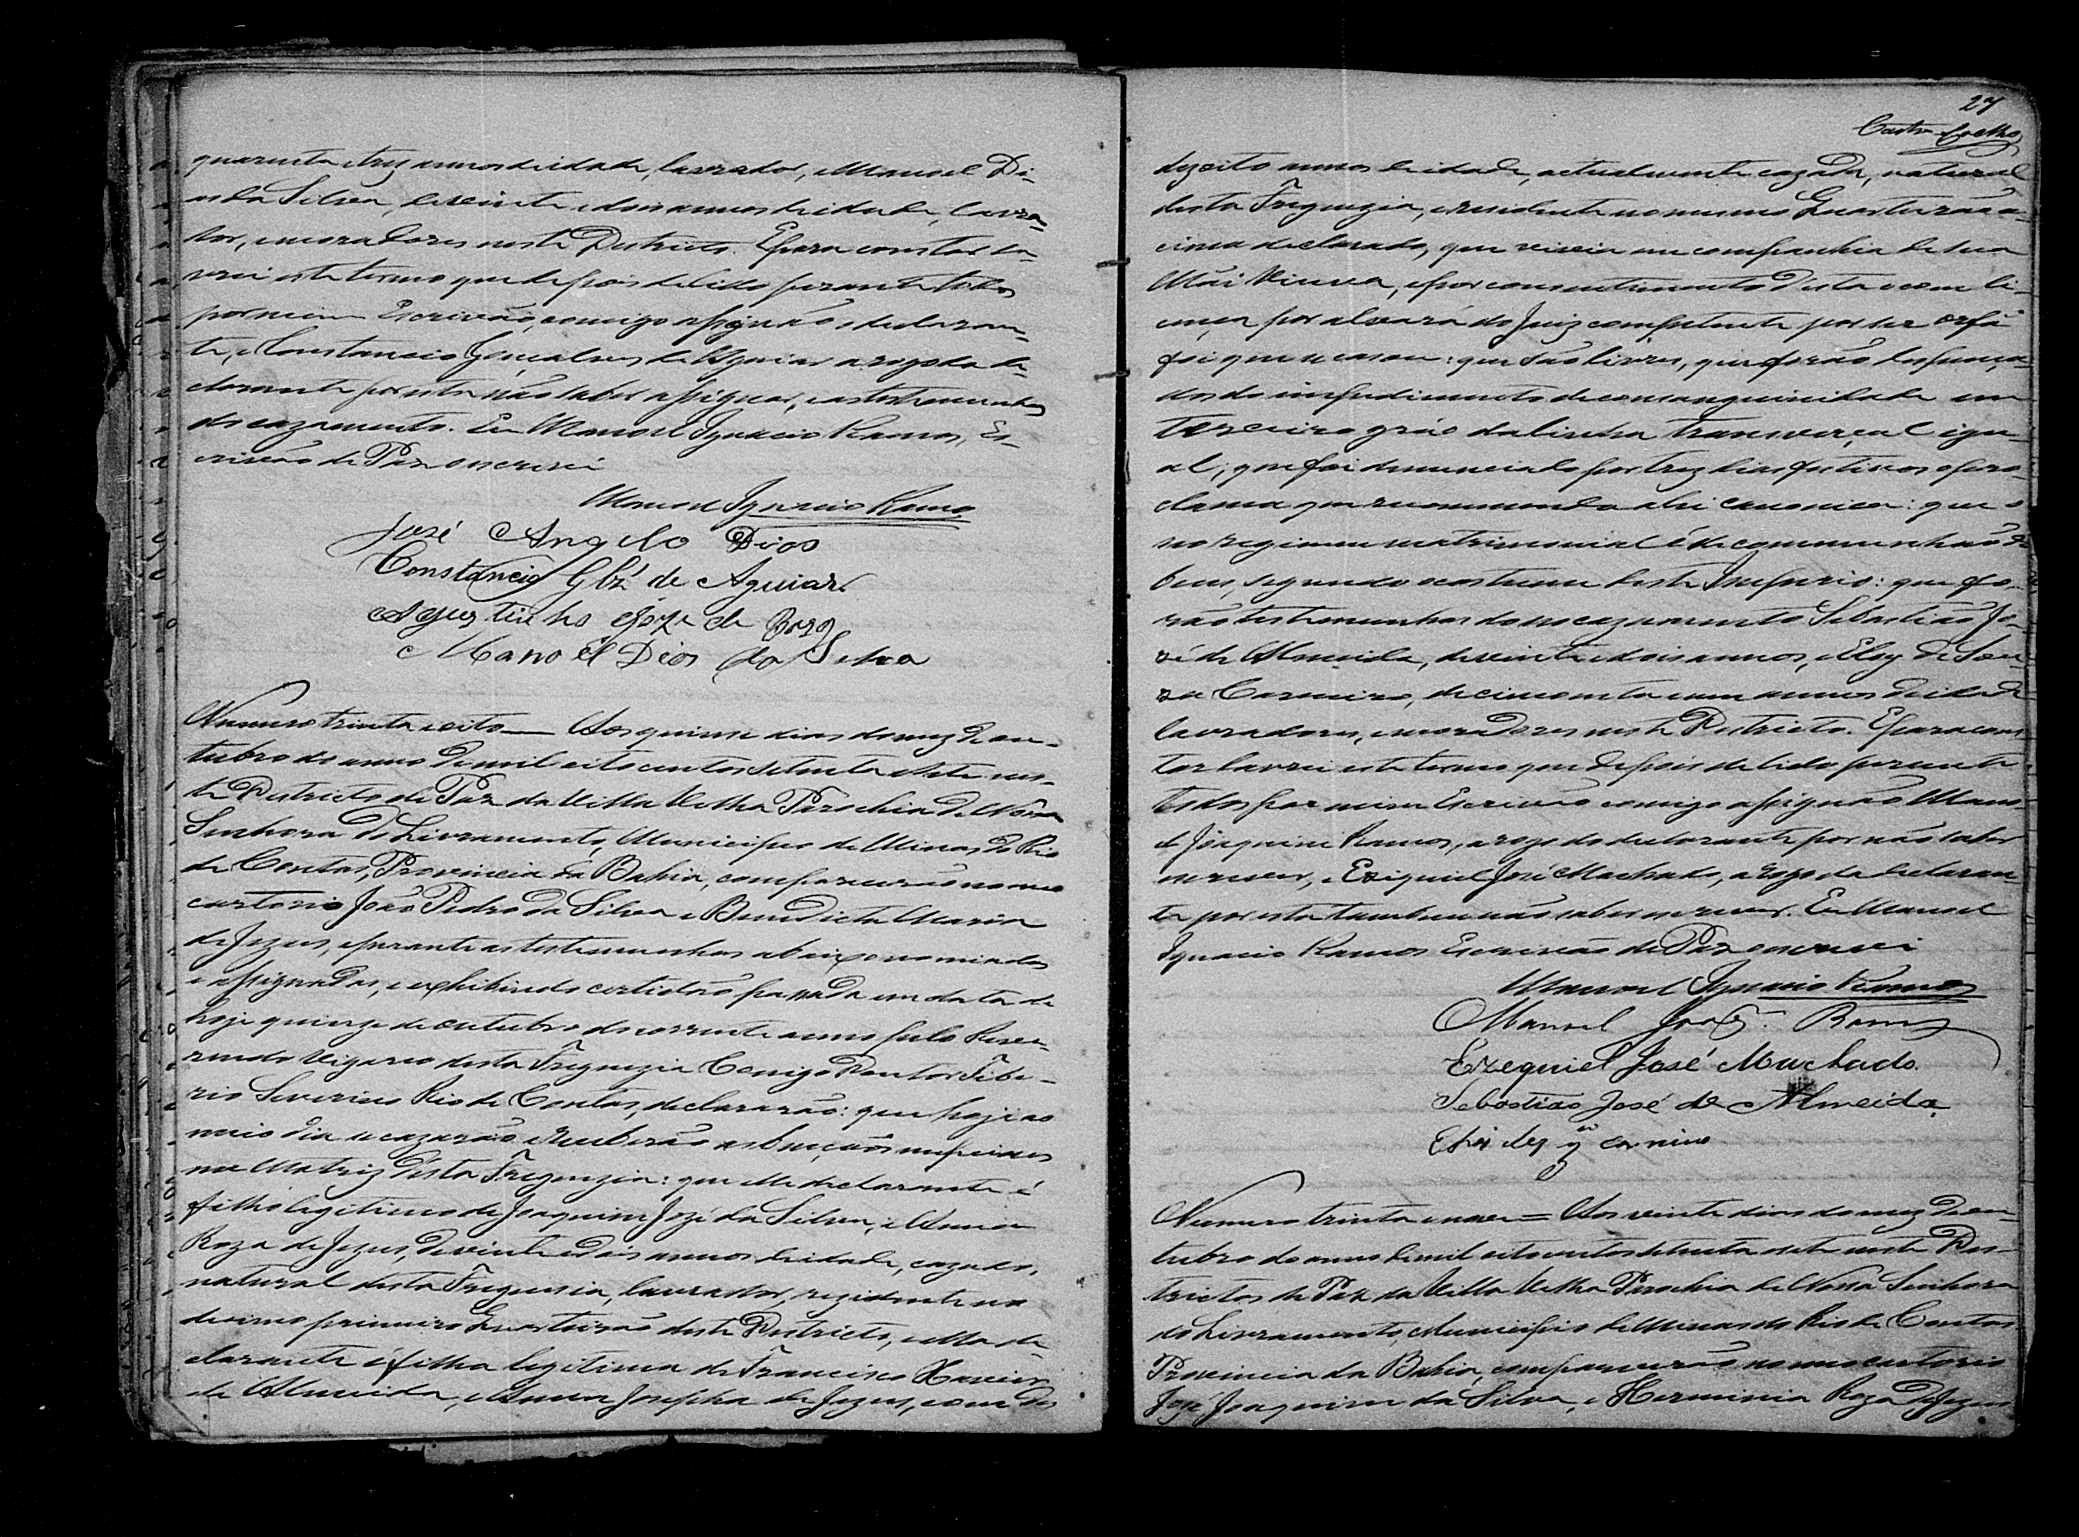 quarenta e trez annos de idade, lavrador, e Manoel Di-
as da Silva, de vinte e dois annos de idade, lavra-
dor, e moradores neste Destricto. E para constar la-
vrei este termo que depois de lido perante todos
por mim Escrivão, comigo assignão o declaran-
te, e Constancio Gonçalves de Aguiar a rogo da de-
clarante por esta não saber assignar, e as testemunhas
do cazamento. Eu Manoel Ignacio Ramos, Es-
crivão de Paz o escrevi
Manoel Ignacio Ramos
José Angelo Dias
Constancio Glz' de Aguiar
Agustinho Joze de
Manoel Dias da Silva
Numero trinta e oito — Aos quinze dias do mez de ou-
tubro do anno de mil oito centos setenta e sete nes-
te Destricto de Paz da Villa Velha Parochia de Nossa
Senhora do Livramento, Municipio de Minas do Rio
de Contas, Provincia da Bahia, comparecerão no meo
cartorio João Pedro da Silva e Benedicta Maria
de Jezus, e perante as testemunhas abaixo nomiadas
e assignadas, e exhibindo certidão passada em data de
hoje quinze de outubro do corrente anno pelo Reve-
rendo Vigario desta Freguezia Conigo Doutor Tibe-
rio Severino Rio de Contas, declararão: que hoje ao
meio dia se cazarão e receberão as bençãos nupciaes
na Matriz desta Freguezia: que elle declarante é
filho legitimo de Joaquim Jozé da Silva, e Anna
Roza de Jezus, de vinte e dois annos de idade, cazado,
natural desta Freguesia, lavrador, rezidente no
decimo primeiro Quarteirão deste Destricto, e ella de-
clarante é filha legitima de Francisco Xavier
de Almeida, e Anna Josepha de Jezus, com de
27
Castro Coelho
dezoito annos de idade, actualmente cazada, natural
desta Freguezia, e residente no mesmo Quarteirão a-
cima declarado, que vivia em companhia de sua
Mãi Viuva, e por consentimento desta e com li-
cença por alvará do Juiz competente por ser orfã
foi que se casou: que são livres, que forão despença-
dos do impedimento de consanguinidade em
terceiro gráo da linha transverçal igu-
al; que foi denunciado por trez dias festivos o pro-
clama que recommenda a lei canonica: que o
no regimen matrimonial é de comunhão de
bens, segundo o costume deste Imperio: que fo-
rão testemunhas do no cazamento Sebastião Jo-
zé de Almeida, de vinte e dois annos, e Eloy de Sou-
za Carneiro, de cincoenta e um annos de idade
lavradores, e moradores neste Destricto. E para cons-
tar lavrei este termo que depois de lido perante
todos por mim Escrivão comigo assignão Mano-
el Joaquim Ramos, a rogo do declarante por não saber
escrever, e Ezequiel José Machado, a rogo da declaran-
te por esta tambem não saber escrever. Eu Manoel
Ignacio Ramos Escrivão de Paz o escrevi
Manoel Ignacio Ramos
Manoel Joaq.m Ramos
Ezequiel José Machado
Sebastião José de Almeida
Numero trinta e nove = Aos vinte dias do mez de ou-
tubro do anno de mil oito centos setenta e sete neste Des-
trictos de Paz da Villa Velha Parochia de Nossa Senhora
do Livramento, Municipio de Minas do Rio de Contas
Provincia da Bahia, comparecerão no meo cartorio
José Joaquim da Silva, e Herminia Roza de Jezus